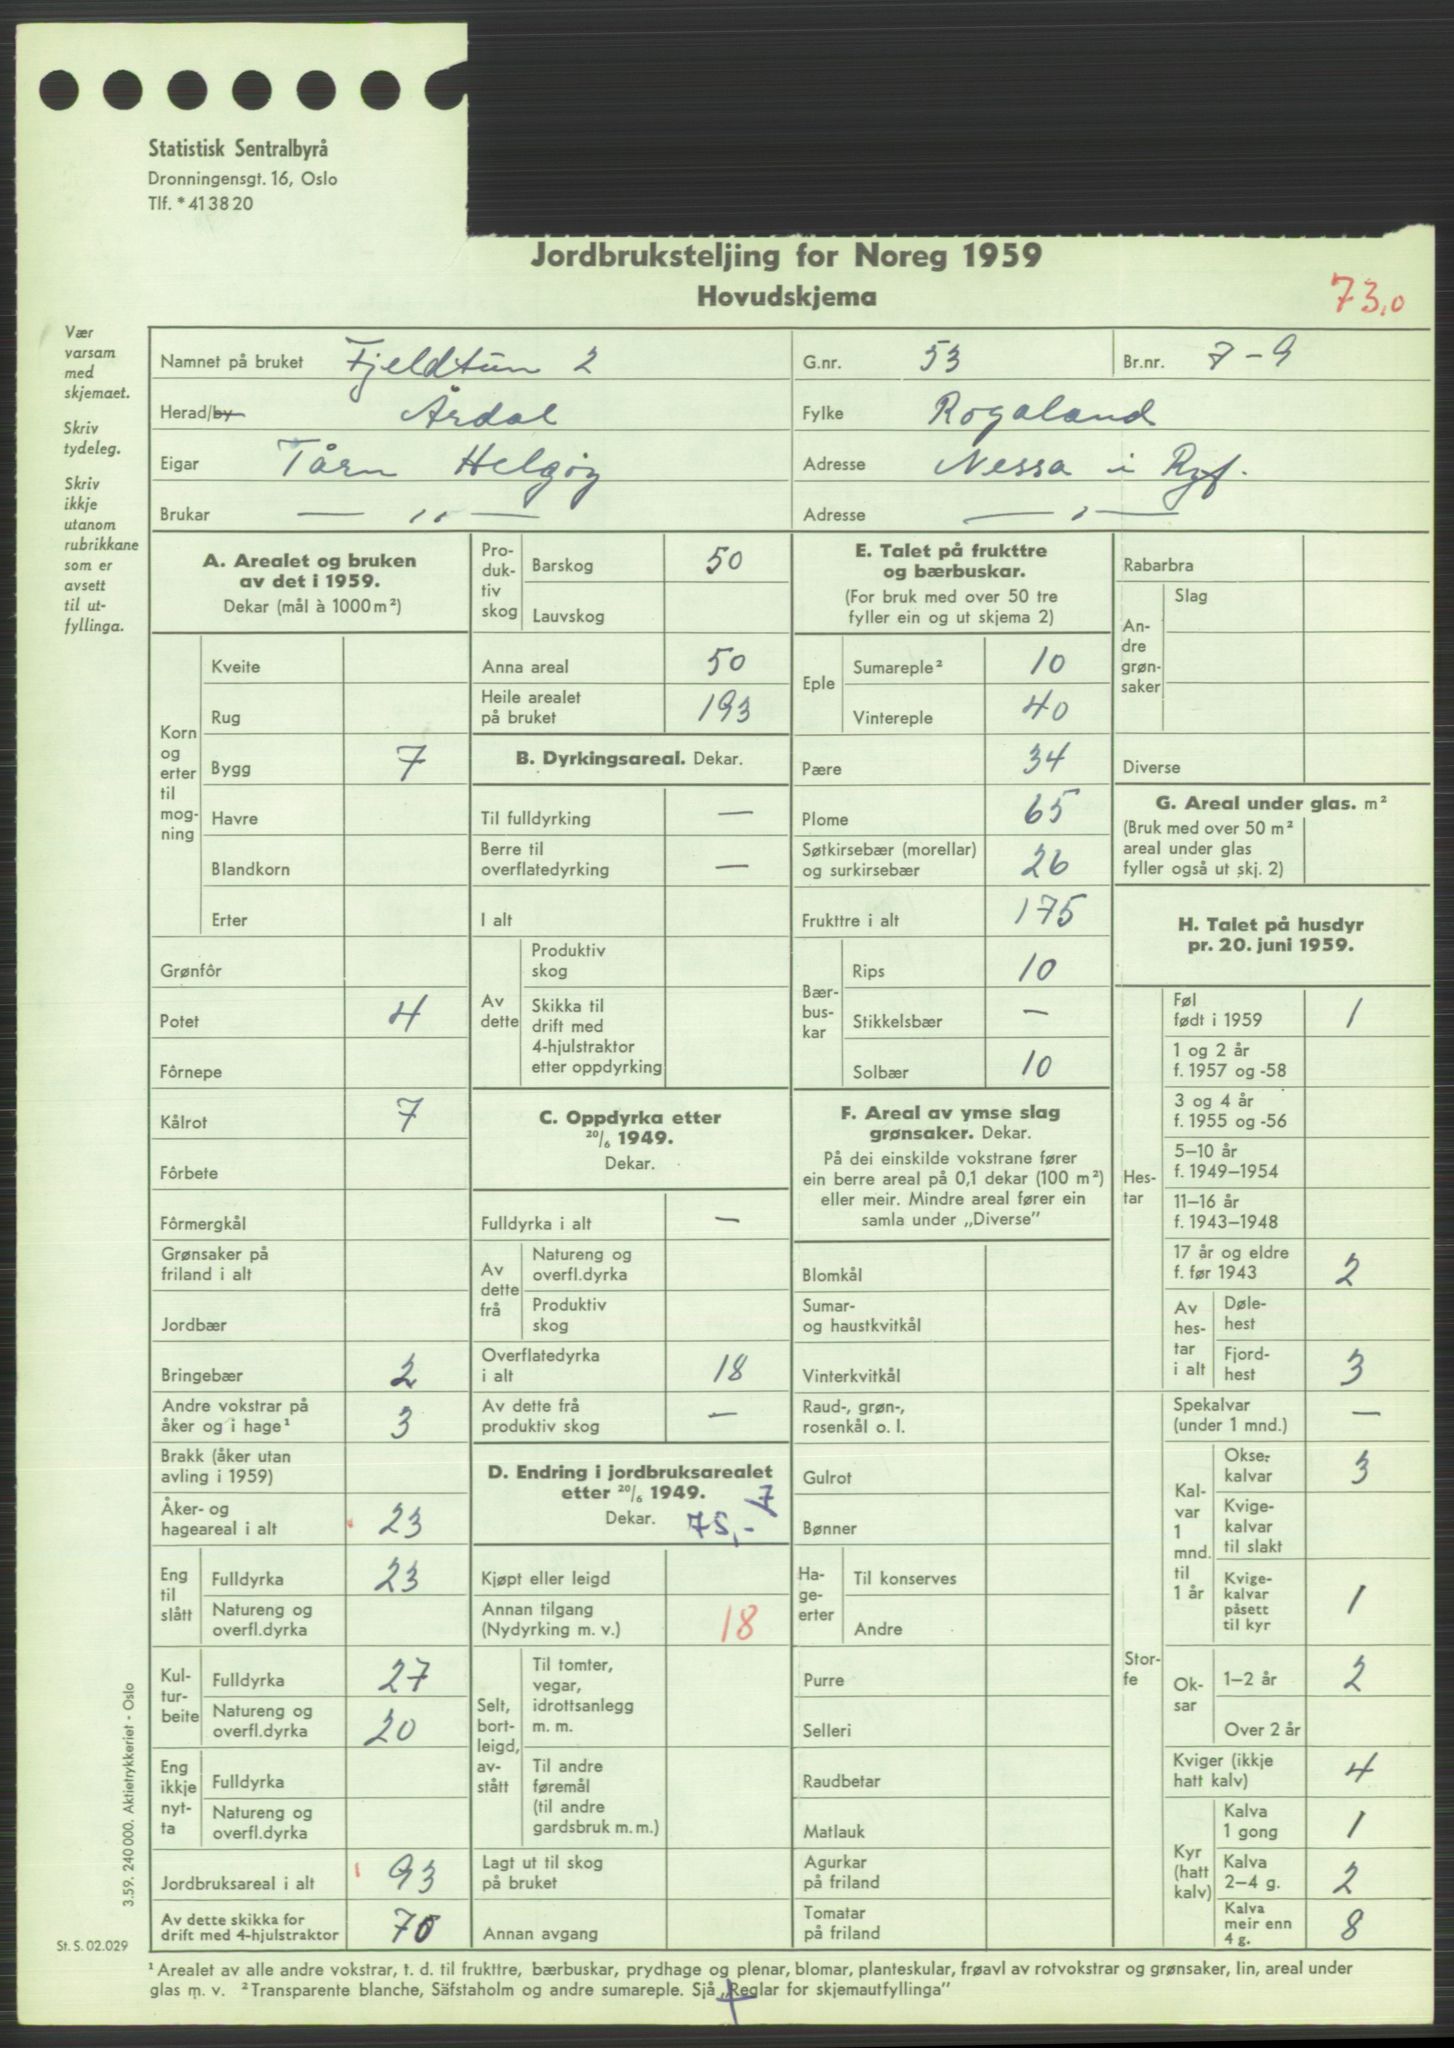 Statistisk Sentralbyrå
Dronningensgt. 16, Oslo
Tlf. * 41 38 20
Jordbruksteljing for Noreg 1959
Hovudskjema
73,0
Vær
varsam
med
skjemaet.
Skriv
tydeleg.
Skriv
ikkje
utanom
rubrikkane
som er
avsett
til ut-
fyllinga.
Namnet på bruket Fjeldtun 2 G.nr. 53 Br.nr. 7-9
Herad/by Årdal Fylke Rogaland
Eigar Tårn Helgøy Adresse Nessa i Ryf.
Brukar — ,, — Adresse — ,, —
A. Arealet og bruken
av det i 1959.
Dekar (mål à 1000 m²)
Korn
og
erter
til
mog-
ning
Kveite
Rug
Bygg 7
Havre
Blandkorn
Erter
Grønfôr
Potet 4
Fôrnepe
Kålrot 7
Fôrbete
Fôrmergkål
Grønsaker på
friland i alt
Jordbær
Bringebær 2
Andre vokstrar på
åker og i hage¹ 3
Brakk (åker utan
avling i 1959)
Åker- og
hageareal i alt 23
Eng
til
slått
Fulldyrka 23
Natureng og
overfl.dyrka
Kul-
tur-
beite
Fulldyrka 27
Natureng og
overfl.dyrka 20
Eng
ikkje
nyt-
ta
Fulldyrka
Natureng og
overfl.dyrka
Jordbruksareal i alt 93
Av dette skikka for
drift med 4-hjulstraktor 70
Pro-
duk-
tiv
skog
Barskog 50
Lauvskog
Anna areal 50
Heile arealet
på bruket 193
B. Dyrkingsareal. Dekar.
Til fulldyrking —
Berre til
overflatedyrking —
I alt
Av
dette
Produktiv
skog
Skikka til
drift med
4-hjulstraktor
etter oppdyrking
C. Oppdyrka etter
20/6 1949.
Dekar.
Fulldyrka i alt —
Av
dette
frå
Natureng og
overfl.dyrka
Produktiv
skog
Overflatedyrka
i alt 18
Av dette frå
produktiv skog —
D. Endring i jordbruksarealet
etter 20/6 1949. 7
Dekar. 75,-
Kjøpt eller leigd
Annan tilgang
(Nydyrking m. v.) 18
Selt,
bort-
leigd,
av-
stått
Til tomter,
vegar,
idrottsanlegg
m. m.
Til andre
føremål
(til andre
gardsbruk m. m.)
Lagt ut til skog
på bruket
Annan avgang
E. Talet på frukttre
og bærbuskar.
(For bruk med over 50 tre
fyller ein og ut skjema 2)
Eple
Sumareple² 10
Vintereple 40
Pære 34
Plome 65
Søtkirsebær (morellar)
og surkirsebær 26
Frukttre i alt 175
Bær-
bus-
kar
Rips 10
Stikkelsbær —
Solbær 10
F. Areal av ymse slag
grønsaker. Dekar.
På dei einskilde vokstrane fører
ein berre areal på 0,1 dekar (100 m²)
eller meir. Mindre areal fører ein
samla under „Diverse”
Blomkål
Sumar-
og haustkvitkål
Vinterkvitkål
Raud-, grøn-,
rosenkål o. l.
Gulrot
Bønner
Ha-
ge-
erter
Til konserves
Andre
Purre
Selleri
Raudbetar
Matlauk
Agurkar
på friland
Tomatar
på friland
Rabarbra
An-
dre
grøn-
saker
Slag
Diverse
G. Areal under glas. m²
(Bruk med over 50 m²
areal under glas
fyller også ut skj. 2)
H. Talet på husdyr
pr. 20. juni 1959.
Hes-
tar
Føl
født i 1959 1
1 og 2 år
f. 1957 og -58
3 og 4 år
f. 1955 og -56
5–10 år
f. 1949–1954
11–16 år
f. 1943–1948
17 år og eldre
f. før 1943 2
Av
hes-
tar
i alt
Døle-
hest
Fjord-
hest 3
Stor-
fe
Spekalvar
(under 1 mnd.) —
Kal-
var
1
mnd.
til
1 år
Okse-
kalvar 3
Kvige-
kalvar
til slakt
Kvige-
kalvar
påsett
til kyr 1
Ok-
sar
1–2 år 2
Over 2 år
Kviger (ikkje
hatt kalv) 4
Kyr
(hatt
kalv)
Kalva
1 gong 1
Kalva
2–4 g. 2
Kalva
meir enn
4 g. 8
3.59. 240 000. Aktietrykkeriet - Oslo
St. S. 02.029
¹ Arealet av alle andre vokstrar, t. d. til frukttre, bærbuskar, prydhage og plenar, blomar, planteskular, frøavl av rotvokstrar og grønsaker, lin, areal under
glas m. v. ² Transparente blanche, Säfstaholm og andre sumareple. Sjå „Reglar for skjemautfyllinga”